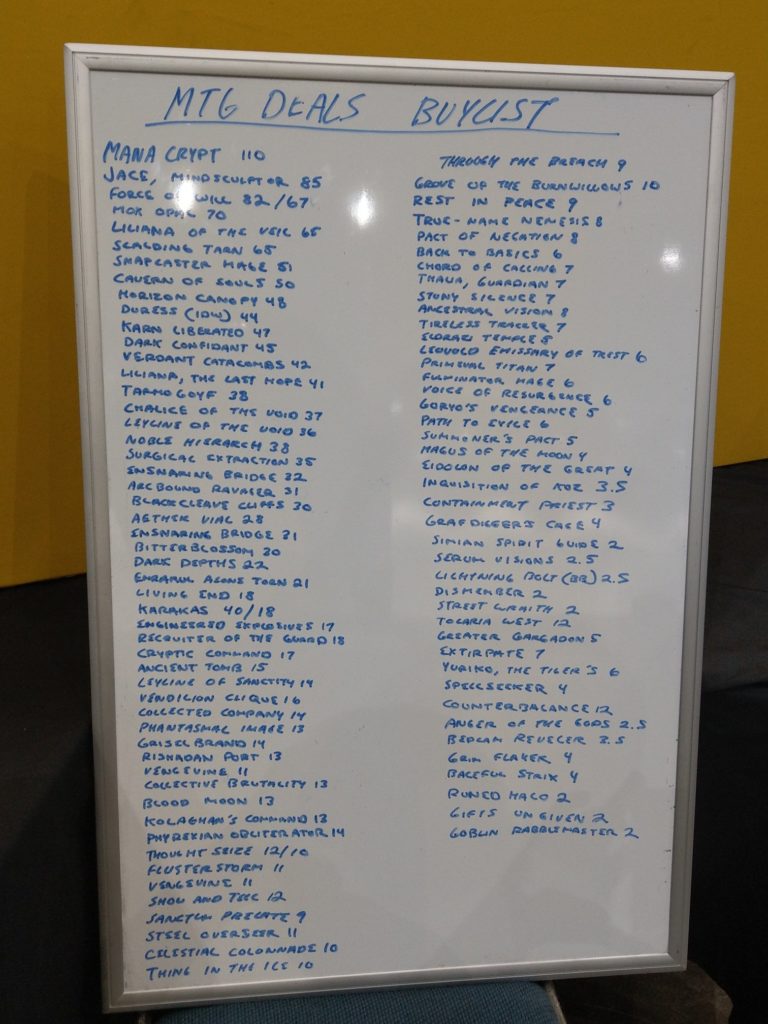 MTG DEALS BUYLIST
MANA CRYPT 110
JACE, MINDSCULPTOR 85
FORCE OF WILL 82/67
MOX OPAL 70
LILIANA OF THE VEIL 65
SCALDING TARN 65
SNAPCASTER MAGE 51
CAVERN OF SOULS 50
HORIZON CANOPY 48
DURESS (IDW) 44
KARN LIBERATED 47
DARK CONFIDANT 45
VERDANT CATACOMBS 42
LILIANA, THE LAST HOPE 41
TARMOGOYF 38
CHALICE OF THE VOID 37
LEYLINE OF THE VOID 36
NOBLE HIERARCH 38
SURGICAL EXTRACTION 35
ENSNARING BRIDGE 32
ARCBOUND RAVAGER 31
BLACKCLEAVE CLIFFS 30
AETHER VIAL 28
ENSNARING BRIDGE 31
BITTERBLOSSOM 20
DARK DEPTHS 22
EMRAKUL AEONS TORN 21
LIVING END 18
KARAKAS 40/18
ENGINEERED EXPLOSIVES 17
RECRUITER OF THE GUARD 18
CRYPTIC COMMAND 17
ANCIENT TOMB 15
LEYLINE OF SANCTITY 14
VENDILION CLIQUE 16
COLLECTED COMPANY 14
PHANTASMAL IMAGE 13
GRISELBRAND 14
RISHADAN PORT 13
VENGEVINE 11
COLLECTIVE BRUTALITY 13
BLOOD MOON 13
KOLAGHAN'S COMMAND 13
PHYREXIAN OBLITERATOR 14
THOUGHT SEIZE 12/10
FLUSTERSTORM 11
VENGEVINE 11
SHOW AND TELL 12
SANCTUM PRELATE 9
STEEL OVERSEER 11
CELESTIAL COLONNADE 10
THING IN THE ICE 10
THROUGH THE BREACH 9
GROVE OF THE BURNWILLOWS 10
REST IN PEACE 9
TRUE-NAME NEMESIS 8
PACT OF NEGATION 8
BACK TO BASICS 6
CHORD OF CALLING 7
THALIA, GUARDIAN 7
STONY SILENCE 7
ANCESTRAL VISION 8
TIRELESS TRACKER 7
ELDRAZI TEMPLE 8
LEOVOLD EMISSARY OF TREST 6
PRIMEVAL TITAN 7
FULMINATOR MAGE 6
VOICE OF RESURGENCE 6
GORYO'S VENGEANCE 5
PATH TO EXILE 6
SUMMONER'S PACT 5
MAGUS OF THE MOON 4
EIDOLON OF THE GREAT 4
INQUISITION OF KOZ 3.5
CONTAINMENT PRIEST 3
GRAFDIGGER'S CAGE 4
SIMIAN SPIRIT GUIDE 2
SERUM VISIONS 2.5
LIGHTNING BOLT (BB) 2.5
DISMEMBER 2
STREET WRAITH 2
TOLARIA WEST 12
GREATER GARGADON 5
EXTIRPATE 7
YURIKO, THE TIGER'S 6
SPELLSEEKER 4
COUNTERBALANCE 12
ANGER OF THE GODS 2.5
BEDLAM REVELER 3.5
GRIM FLAYER 4
BALEFUL STRIX 4
RUNED HALO 2
GIFTS UNGIVEN 2
GOBLIN RABBLEMASTER 2